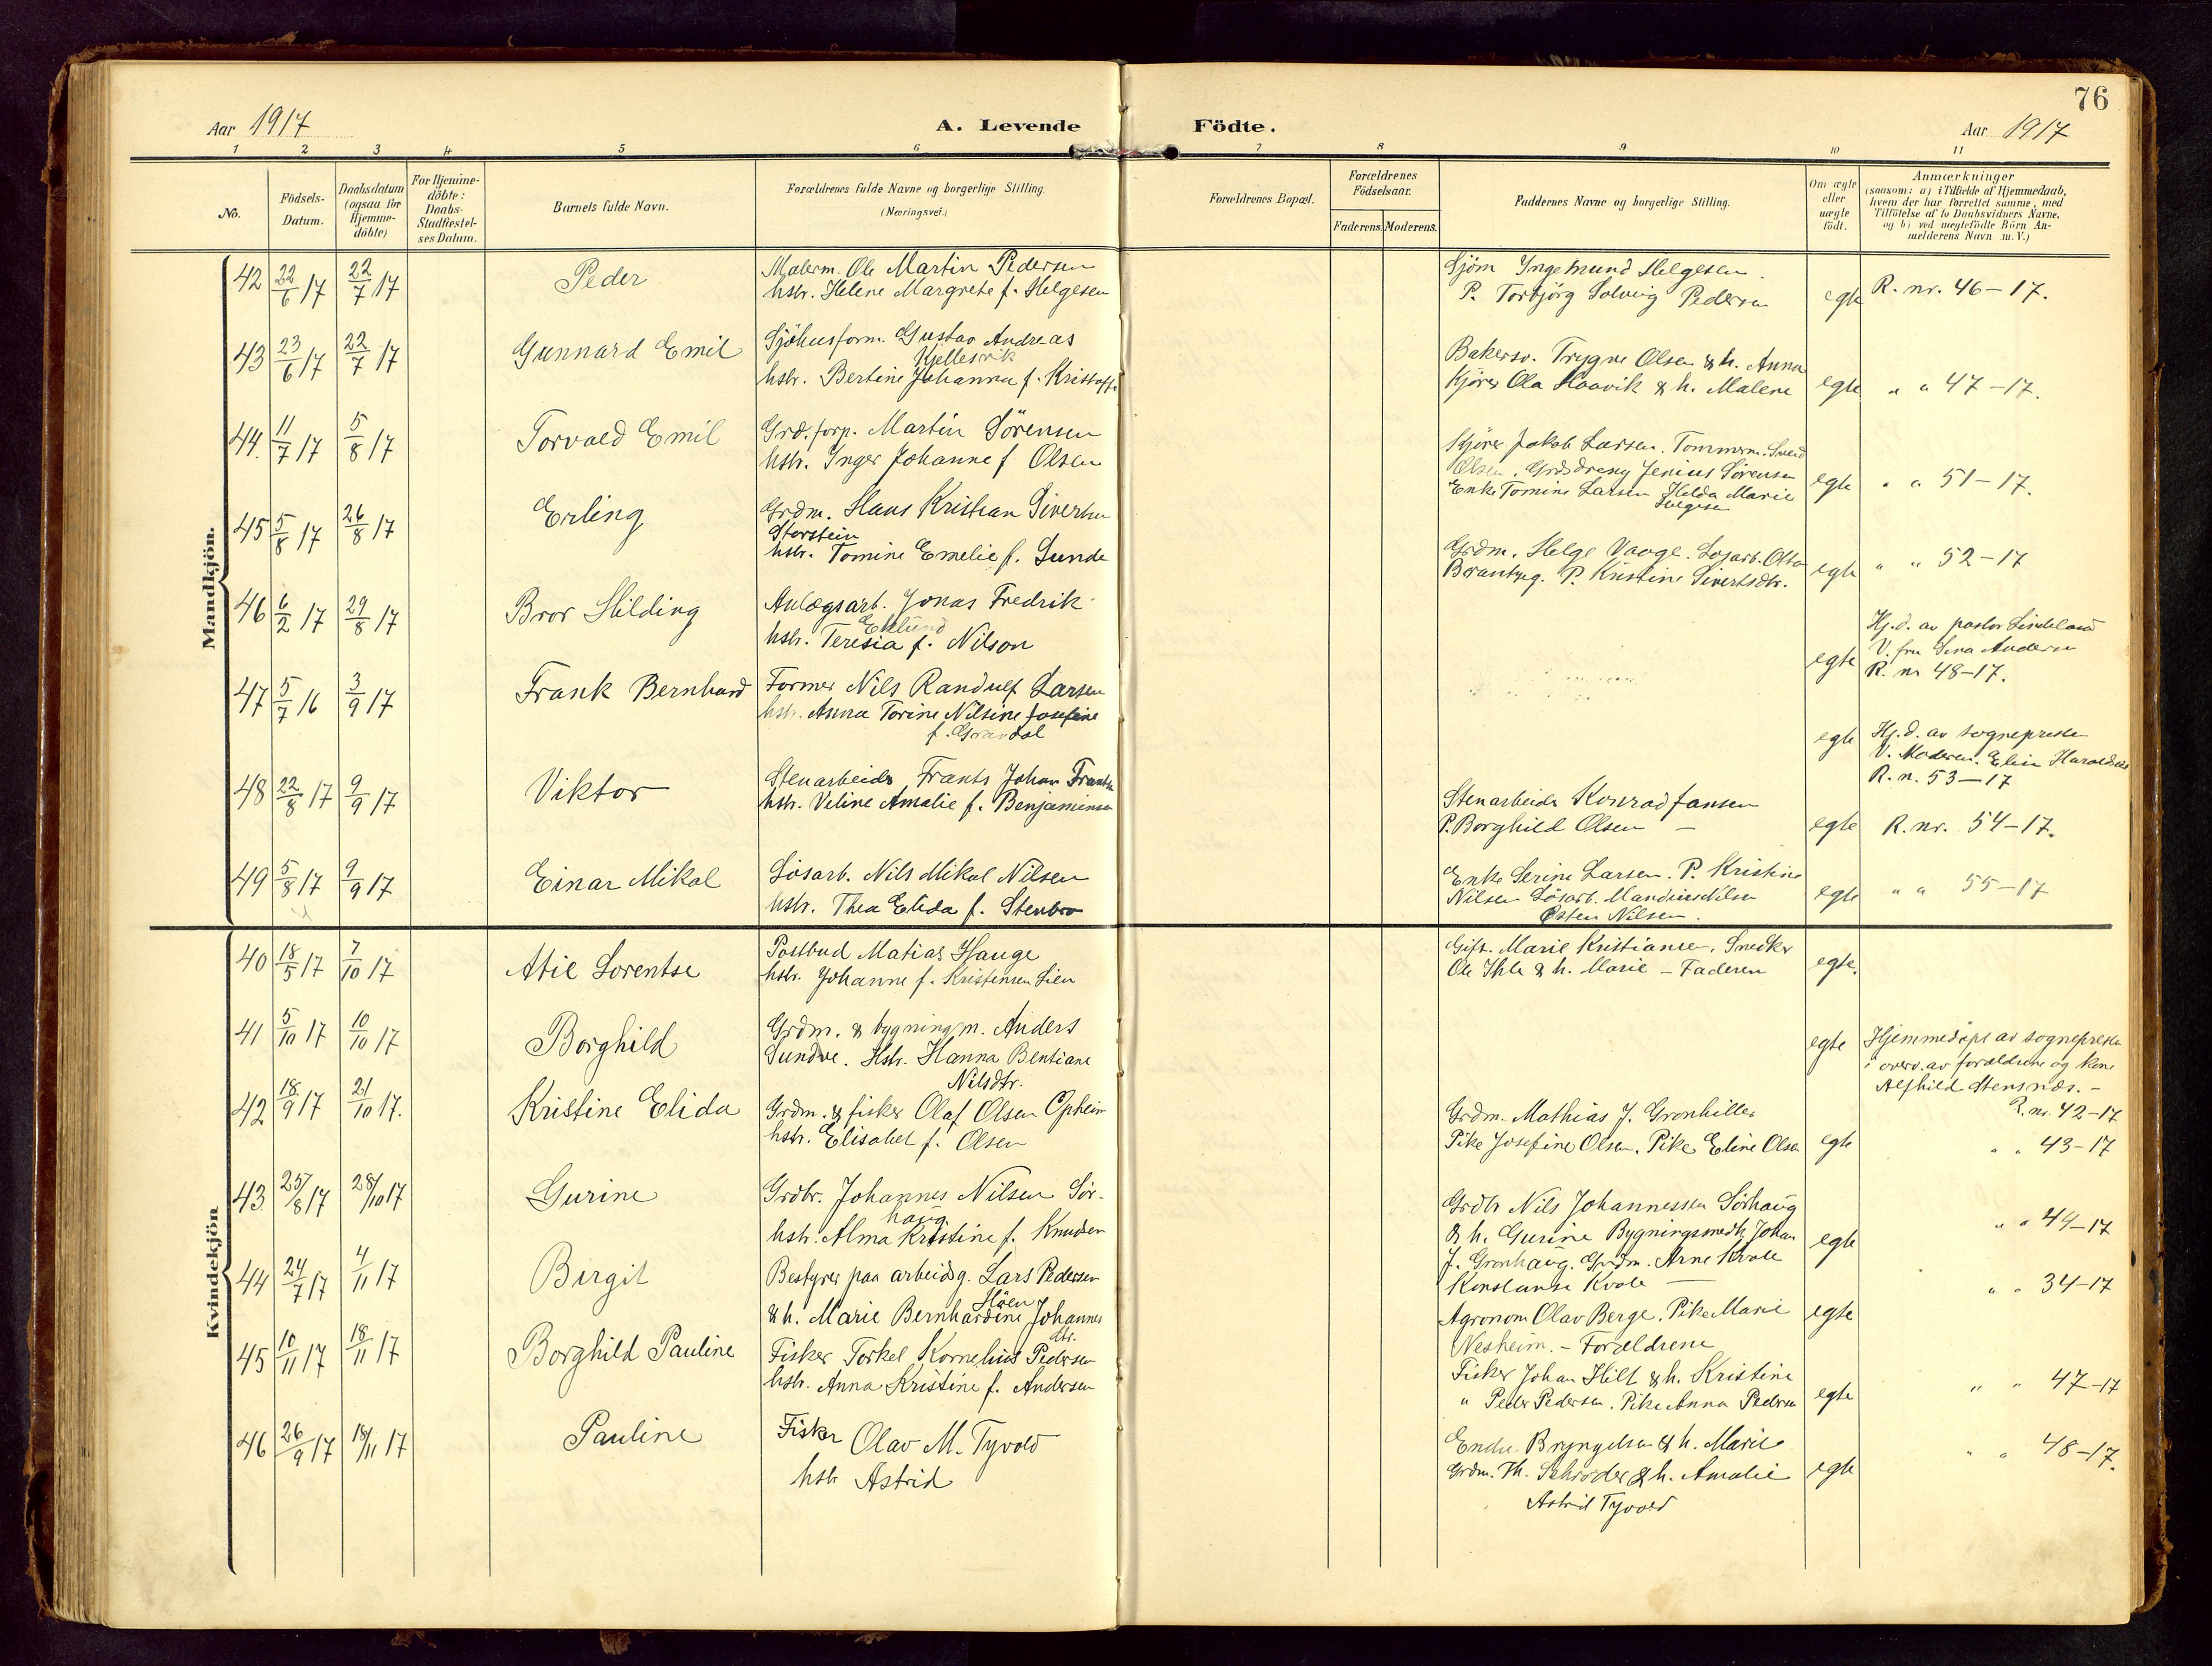 76
Aar 1917
A. Levende Födte.
Aar 1917
1 2 3 4 5 6 7 8 9 10 11
No.
Födsels-Datum.
Daabsdatum (ogsaa for Hjemme-döbte)
For Hjemme-döbte: Daabs-Stadfæstel-ses Datum.
Barnets fulde Navn.
Forældrenes fulde Navne og borgerlige Stilling. (Næringsvei.)
Forældrenes Bopæl.
Forældrenes Födselsaar.
Faderens. Moderens.
Faddernes Navne og borgerlige Stilling.
Om ægte eller uægte födt.
Anmærkninger (saasom: a) i Tilfælde af Hjemmedaab, hvem der har forrettet samme, med Tilföielse af to Daabsvidners Navne. og b) ved uægtefödte Börn An-melderens Navn m. V.)
Mandkjön.
42 22/6 17 22/7 17 Peder
Malerm. Ole Martin Pedersen
hstr. Helene Margrete f. Helgesen
Sjöm Ingemund Helgesen.
P. Torbjörg Solveig Pedersen
egte R. nr. 46-17.
43 23/6 17 22/7 17 Gunnard Emil
Sjöhusform. Gustav Andreas
Kjellesvik
hstr. Bertine Johanna f. Kristoffe
Bakersv. Trygve Olsen & h. Anna
Kjörer Ola Haavik & h. Malene
egte " " 47-17.
44. 11/7 17 5/8 17 Torvald Emil
Grd. forp. Martin Sörensen
hstr. Inger Johanne f Olsen
Kjörer Jakob Larsen. Tommerm. Svend
Olsen. Grdsdreng Jenius Sörensen
Enke Tomine Larsen Hilda Marie
Helgesen
egte " " 51-17.
45 5/8 17 26/8 17 Erling
Grdm. Hans Kristian Sivertsen
Storstein
hstr. Tomine Emelie f. Lunde
Grdm. Helge Vaage. Losarb. Otto
P. Kristine Sivertsdtr.
egte " " 52-17
46 6/2 17 29/8 17 Bror Hilding
Anlægsarb. Jonas Fredrik
Eklund
hstr. Teresia f. Nilson
egte
Hj.d. av pastor Lindeland
V. fru Lina Andersen
R. nr 48-17.
47 5/7 16 3/9 17 Frank Bernhard
Former Nils Randulf Larsen
hstr. Anna Torine Nilsine Josefine
f. Grandal
egte
Hj.d. av sognepresten
V. Moderen. Elin Haraldsen
R. n. 53-17
48 22/8 17 9/9 17 Viktor
Stenarbeider Frants Johan Frantsen
hstr. Veline Amalie f. Benjaminsen
Stenarbeider Konrad Jansen
P. Borghild Olsen -
egte R. nr. 54-17.
49 5/8 17 9/9 17 Einar Mikal
Losarb. Nils Mikal Nilsen
hstr. Thea Elida f. Stenbro
Enke Serine Larsen. P. Kristine
Nilsen Lösarb. Mandius Nilsen
Østen Nilsen.
egte " " 55-17
Kvindekjön
40 18/5 17 7/10 17 Atie Lorentse
Postbud Matias Hauge
hstr. Johanne f. Kristensen Lien
Gift. Marie Kristiansen, Snedker
Ole Ihle & h. Marie - Faderen
egte.
41 5/10 17 10/10 17 Borghild
Grdm. & bygningm. Anders
Sundve. Hstr. Hanna Bentiane
Nilsdtr.
egte
Hjemmedöpt av sognepresten
i overv. av forældrene og kone
Alfhild Stensnæs. -
R. nr. 42-17
42 18/9 17 21/10 17. Kristine Elida
Grdm. & fisker Olaf Olsen Opheim
hstr. Elisabet f. Olsen
Grdm. Mathias J. Gronhiller
Pike Josefine Olsen. Pike Eline Olsen
egte " " 43-17
43 25/8 17 28/10 17 Gurine
Grdbr. Johannes Nilsen Sör-
haug
hstr. Alma Kristine f. Knudsen
Grdbr Nils Johannessen Sörhaug
& h. Gurine Bygningsmedh. Johan
J. Gronhaug. Grdm. Arne Kvale
Konstanse Kvale -
egte " " 44-17
44 24/7 17 4/11 17 Birgit
Bestyrer paa arbeidsg. Lars Pedersen
Höen
& h. Marie Bernhardine Johannes
dtr.
Agronom Olav Berge. Pike Marie
Nesheim. - Forældrene
egte " " 34-17
45 10/11 17 18/11 17 Borghild Pauline
Fisker Torkel Kornelius Pedersen
hstr. Anna Kristine f. Andersen
Fisker Johan Hilt & h. Kristine
" Peder Pedersen. Pike Anna Pedersen
egte " " 47-17
46 26/9 17 18/11 17 Pauline
Fisker Olav M. Tyvold
hstr Astrid
Endre Bryngelsen & h. Marie
Grdm. Th. Schröder & h. Amalie
Astrid Tyvold
egte " " 48-17.